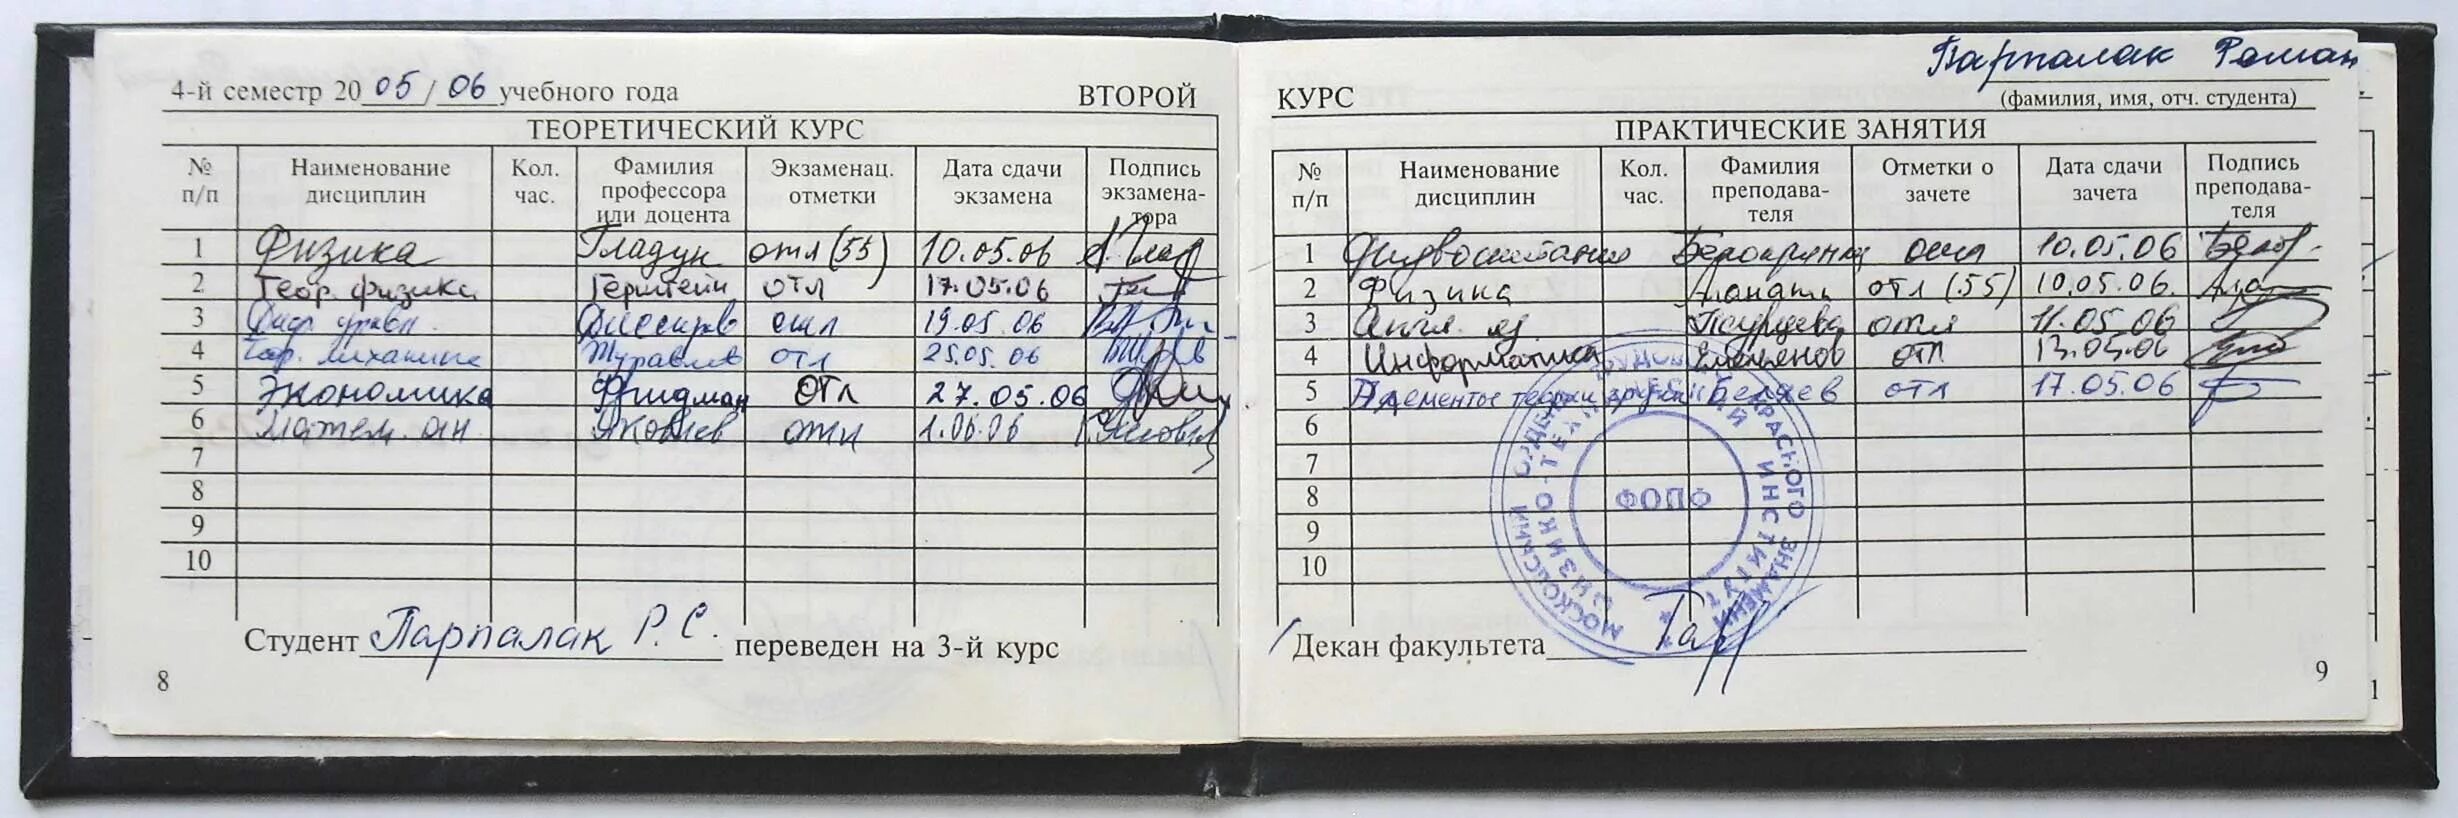 4-й семестр 20 05 / 06 учебного года
ВТОРОЙ
ТЕОРЕТИЧЕСКИЙ КУРС
№ п/п Наименование дисциплин Кол. час. Фамилия профессора или доцента Экзаменац. отметки Дата сдачи экзамена Подпись экзаменатора
1 Физика Гладун отл (55) 10.05.06
2 Теор. физика Герштейн отл 17.05.06
3 Диф. уравн. отл 19.05.06
4 Журавлев отл 25.05.06
5 Экономика Фридман отл 27.05.06
6 Матем. ан Яковлев отл 1.06.06
7
8
9
10
Студент Парпалак Р. С. переведен на 3-й курс
8
Парпалак Роман
КУРС
(фамилия, имя, отч. студента)
ПРАКТИЧЕСКИЕ ЗАНЯТИЯ
№ п/п Наименование дисциплин Кол. час. Фамилия преподавателя Отметки о зачете Дата сдачи зачета Подпись преподавателя
1 Физвоспитание отл 10.05.06
2 Физика отл (55) 10.05.06.
3 Англ. яз отл 11.05.06
4 Информатика Емельянов отл 13.05.06
5 Элементы теории Беляев отл 17.05.06
6
7
8
9
10
МОСКОВСКИЙ ОРДЕНА ТРУДОВОГО КРАСНОГО ЗНАМЕНИ
ФИЗИКО-ТЕХНИЧЕСКИЙ ИНСТИТУТ
ФОПФ
Декан факультета
9